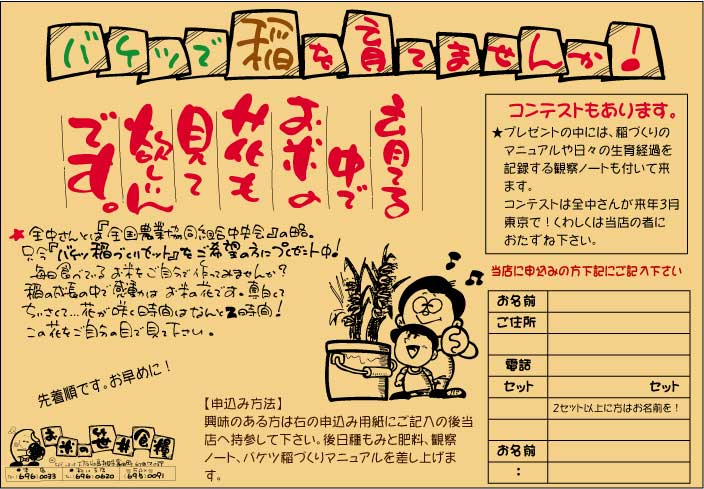 バケツで稲を育てませんか!
育てる
中で
お米の
花も
見て
欲しい
です。
コンテストもあります。
★プレゼントの中には、稲づくりの
マニュアルや日々の生育経過を
記録する観察ノートも付いて来
ます。
コンテストは全中さんが来年3月
東京で!くわしくは当店の者に
おたずね下さい。
★全中さんとは『全国農業協同組合中央会』の略。
只今『バケツ稲づくりセット』をご希望の方にプレゼント中!
毎日食べているお米をご自分で作ってみませんか?
稲の成長の中で感動はお米の花です。真白くて
ちいさくて…花が咲く時間はなんと2時間!
この花をご自分の目で見て下さい。
先着順です。お早めに!
当店に申込みの方下記にご記入下さい
お名前
ご住所
電話
セット セット
2セット以上に方はお名前を!
お名前
:
【申込み方法】
興味のある方は右の申込み用紙にご記入の後当
店へ持参して下さい。後日種もみと肥料、観察
ノート、バケツ稲づくりマニュアルを差し上げま
す。
お米の笹井食糧
696-0033 696-0620 698-0091